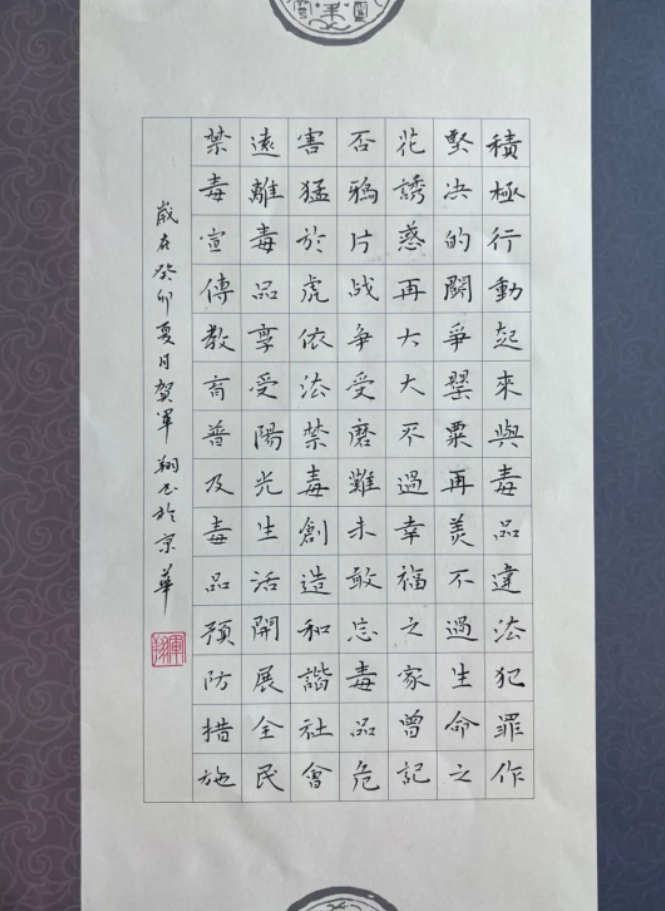 積極行動起來與毒品違法犯罪作
堅决的鬭爭罌粟再美不過生命之
花誘惑再大大不過幸福之家曾記
否鴉片战争受磨難未敢忘毒品危
害猛於虎依法禁毒創造和諧社會
遠離毒品享受陽光生活開展全民
禁毒宣傳教育普及毒品預防措施
歲在癸卯夏日贺军翔书於京華